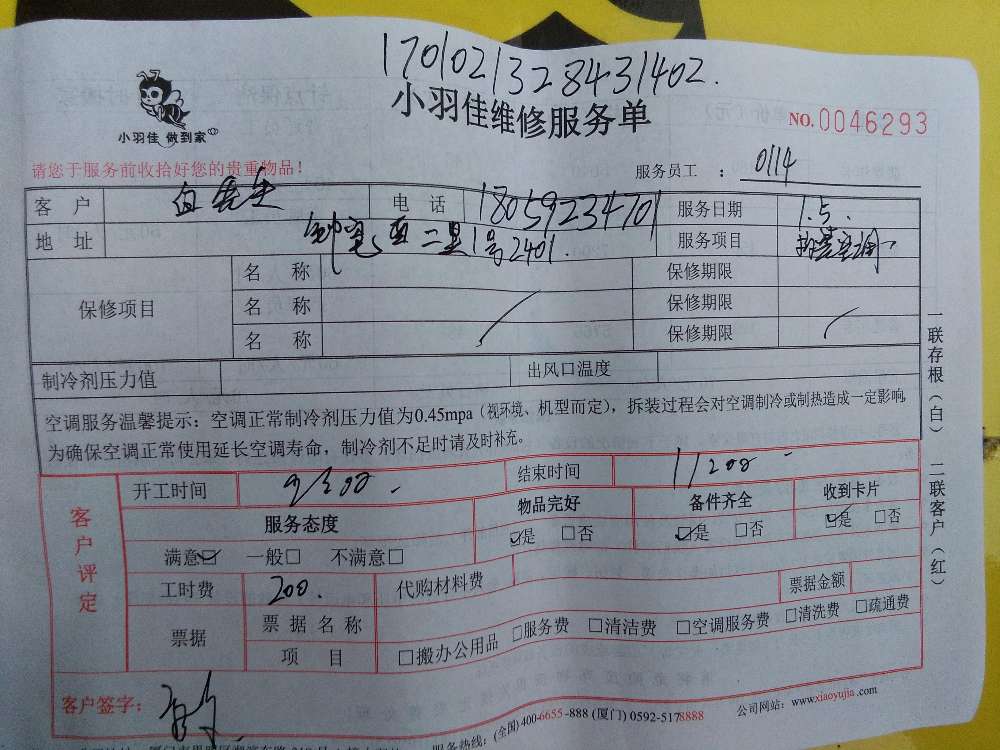 17010213284431402.
小羽佳 做到家
小羽佳维修服务单
NO.0046293
请您于服务前收拾好您的贵重物品!
服务员工 : 0114
客 户 电 话 18059234701 服务日期 1.5.
地 址 二里1号2401. 服务项目 拆装空调
保修项目
名 称 保修期限
名 称 保修期限
名 称 保修期限
制冷剂压力值 出风口温度
空调服务温馨提示: 空调正常制冷剂压力值为0.45mpa (视环境、机型而定), 拆装过程会对空调制冷或制热造成一定影响,
为确保空调正常使用延长空调寿命, 制冷剂不足时请及时补充。
客户评定
开工时间 结束时间 11:200
服务态度 物品完好 备件齐全 收到卡片
满意☑ 一般□ 不满意□ ☑是 □否 ☑是 □否 ☑是 □否
工时费 200. 代购材料费 票据金额
票据
票 据 名 称 □服务费 □清洁费 □空调服务费 □清洗费 □疏通费
项 目 □搬办公用品
客户签字:
服务热线: (全国) 400-6655-888 (厦门) 0592-5178888 公司网站: www.xiaoyujia.com
一联存根(白) 二联客户(红)